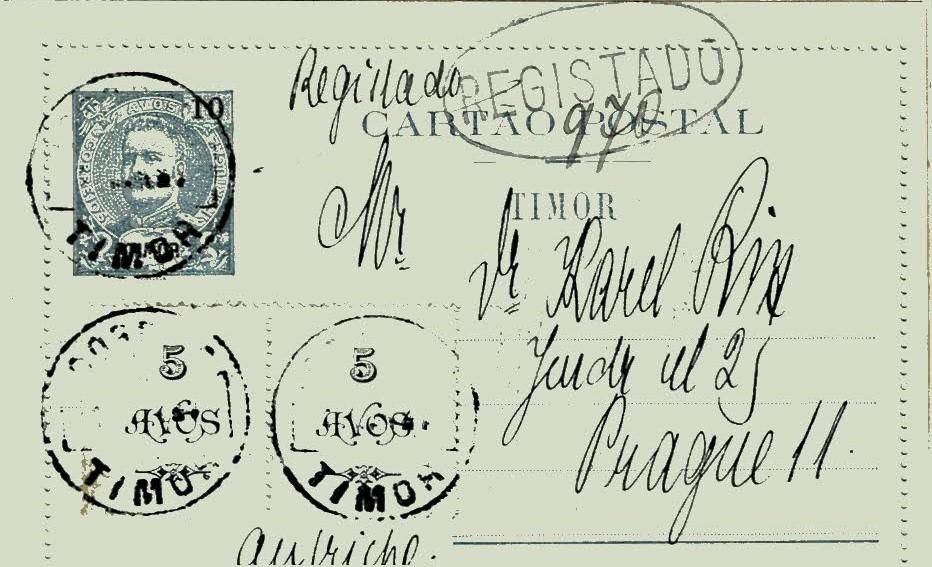 10
Registado
REGISTADO
970
CARTÃO POSTAL
TIMOR
Mr
Dr Karel
25
Prague 11.
TIMOR
5
AVOS
TIMOR
5
AVOS
TIMOR
Autriche.